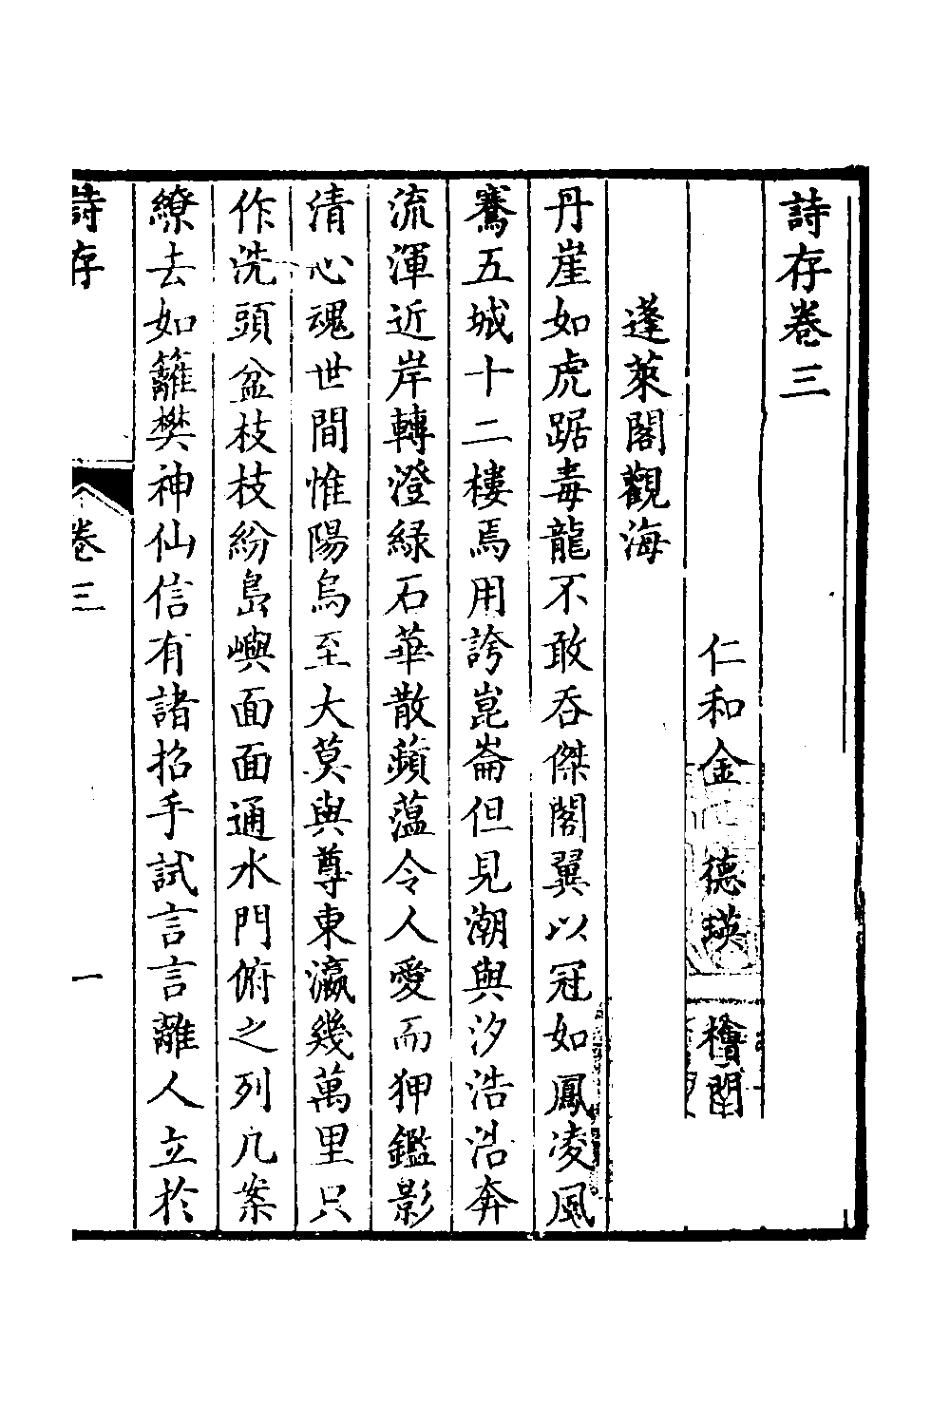 詩存卷三
仁和金德瑛檜門
蓬萊閣觀海
丹崖如虎踞毒龍不敢吞傑閣翼以冠如鳳凌風
騫五城十二樓焉用誇崑崙但見潮與汐浩浩奔
流渾近岸轉澄綠石華散蘋薀令人愛而狎鑑影
清心魂世間惟陽烏至大莫與尊東瀛幾萬里只
作洗頭盆枝枝紛島嶼面面通水門俯之列几案
繚去如籬樊神仙信有諸招手試言言離人立於
詩存
卷三
一